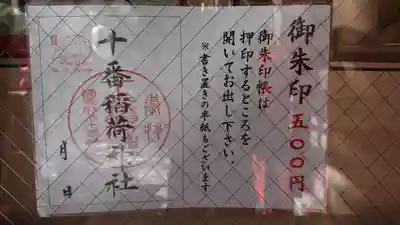 御朱印 五〇〇円
御朱印帳は
押印するところを
開いてお出し下さい。
※書き置きの半紙もございます
十番稲荷神社
月 日